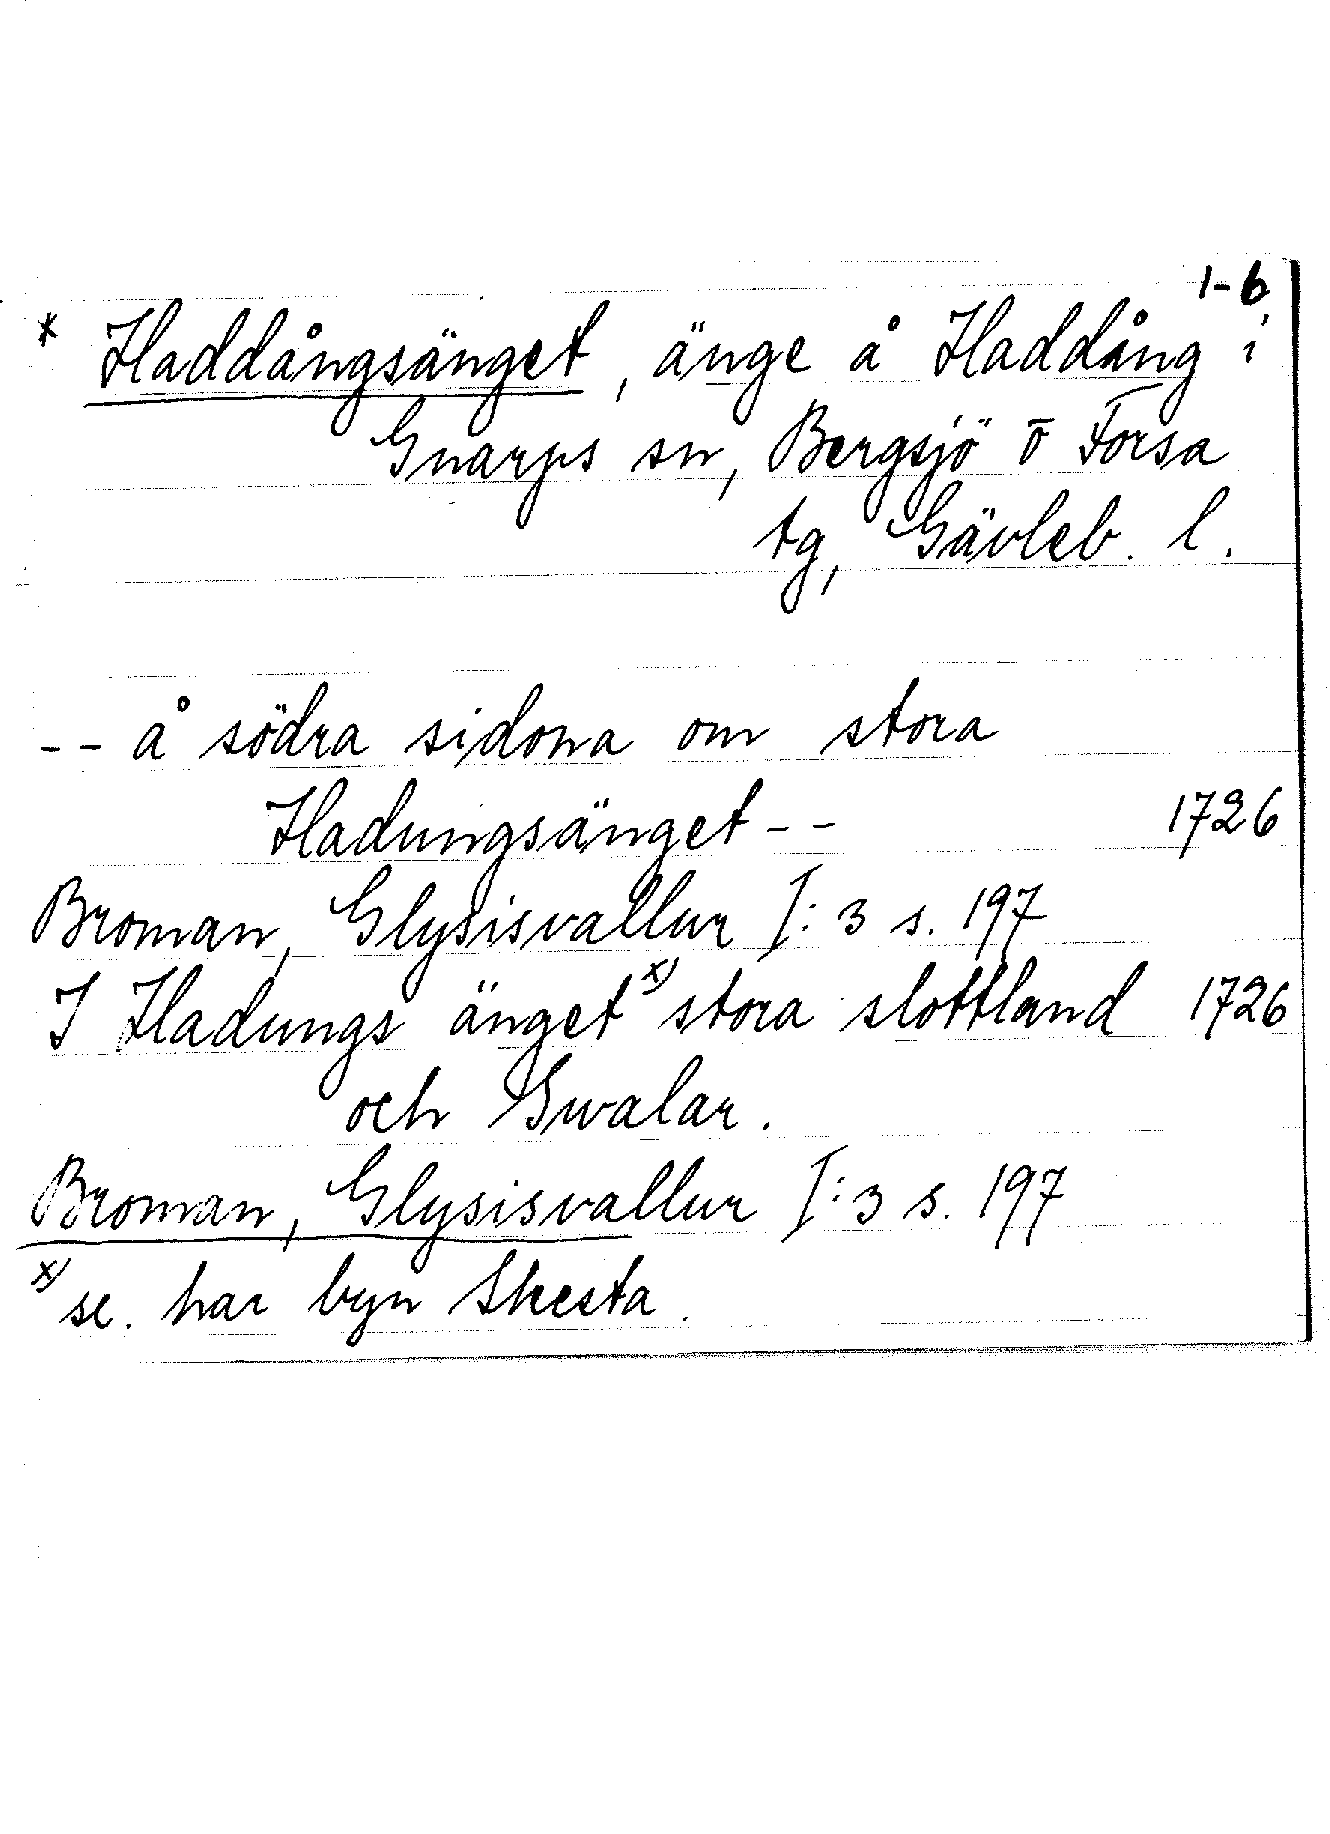 1-6
* Haddångsänget, änge å Haddång i
Gnarps sn, Bergsjö o Forsa
tg, Gävleb. l.
-- å södra sidona om stora
Hadungsänget -- 1726
Broman, Glysisvallur I:3 s. 197
I Hadungs änget x) stora slottland 1726
och Gwalar.
Broman, Glysisvallur I:3 s. 197
x) se. har byn Skesta.